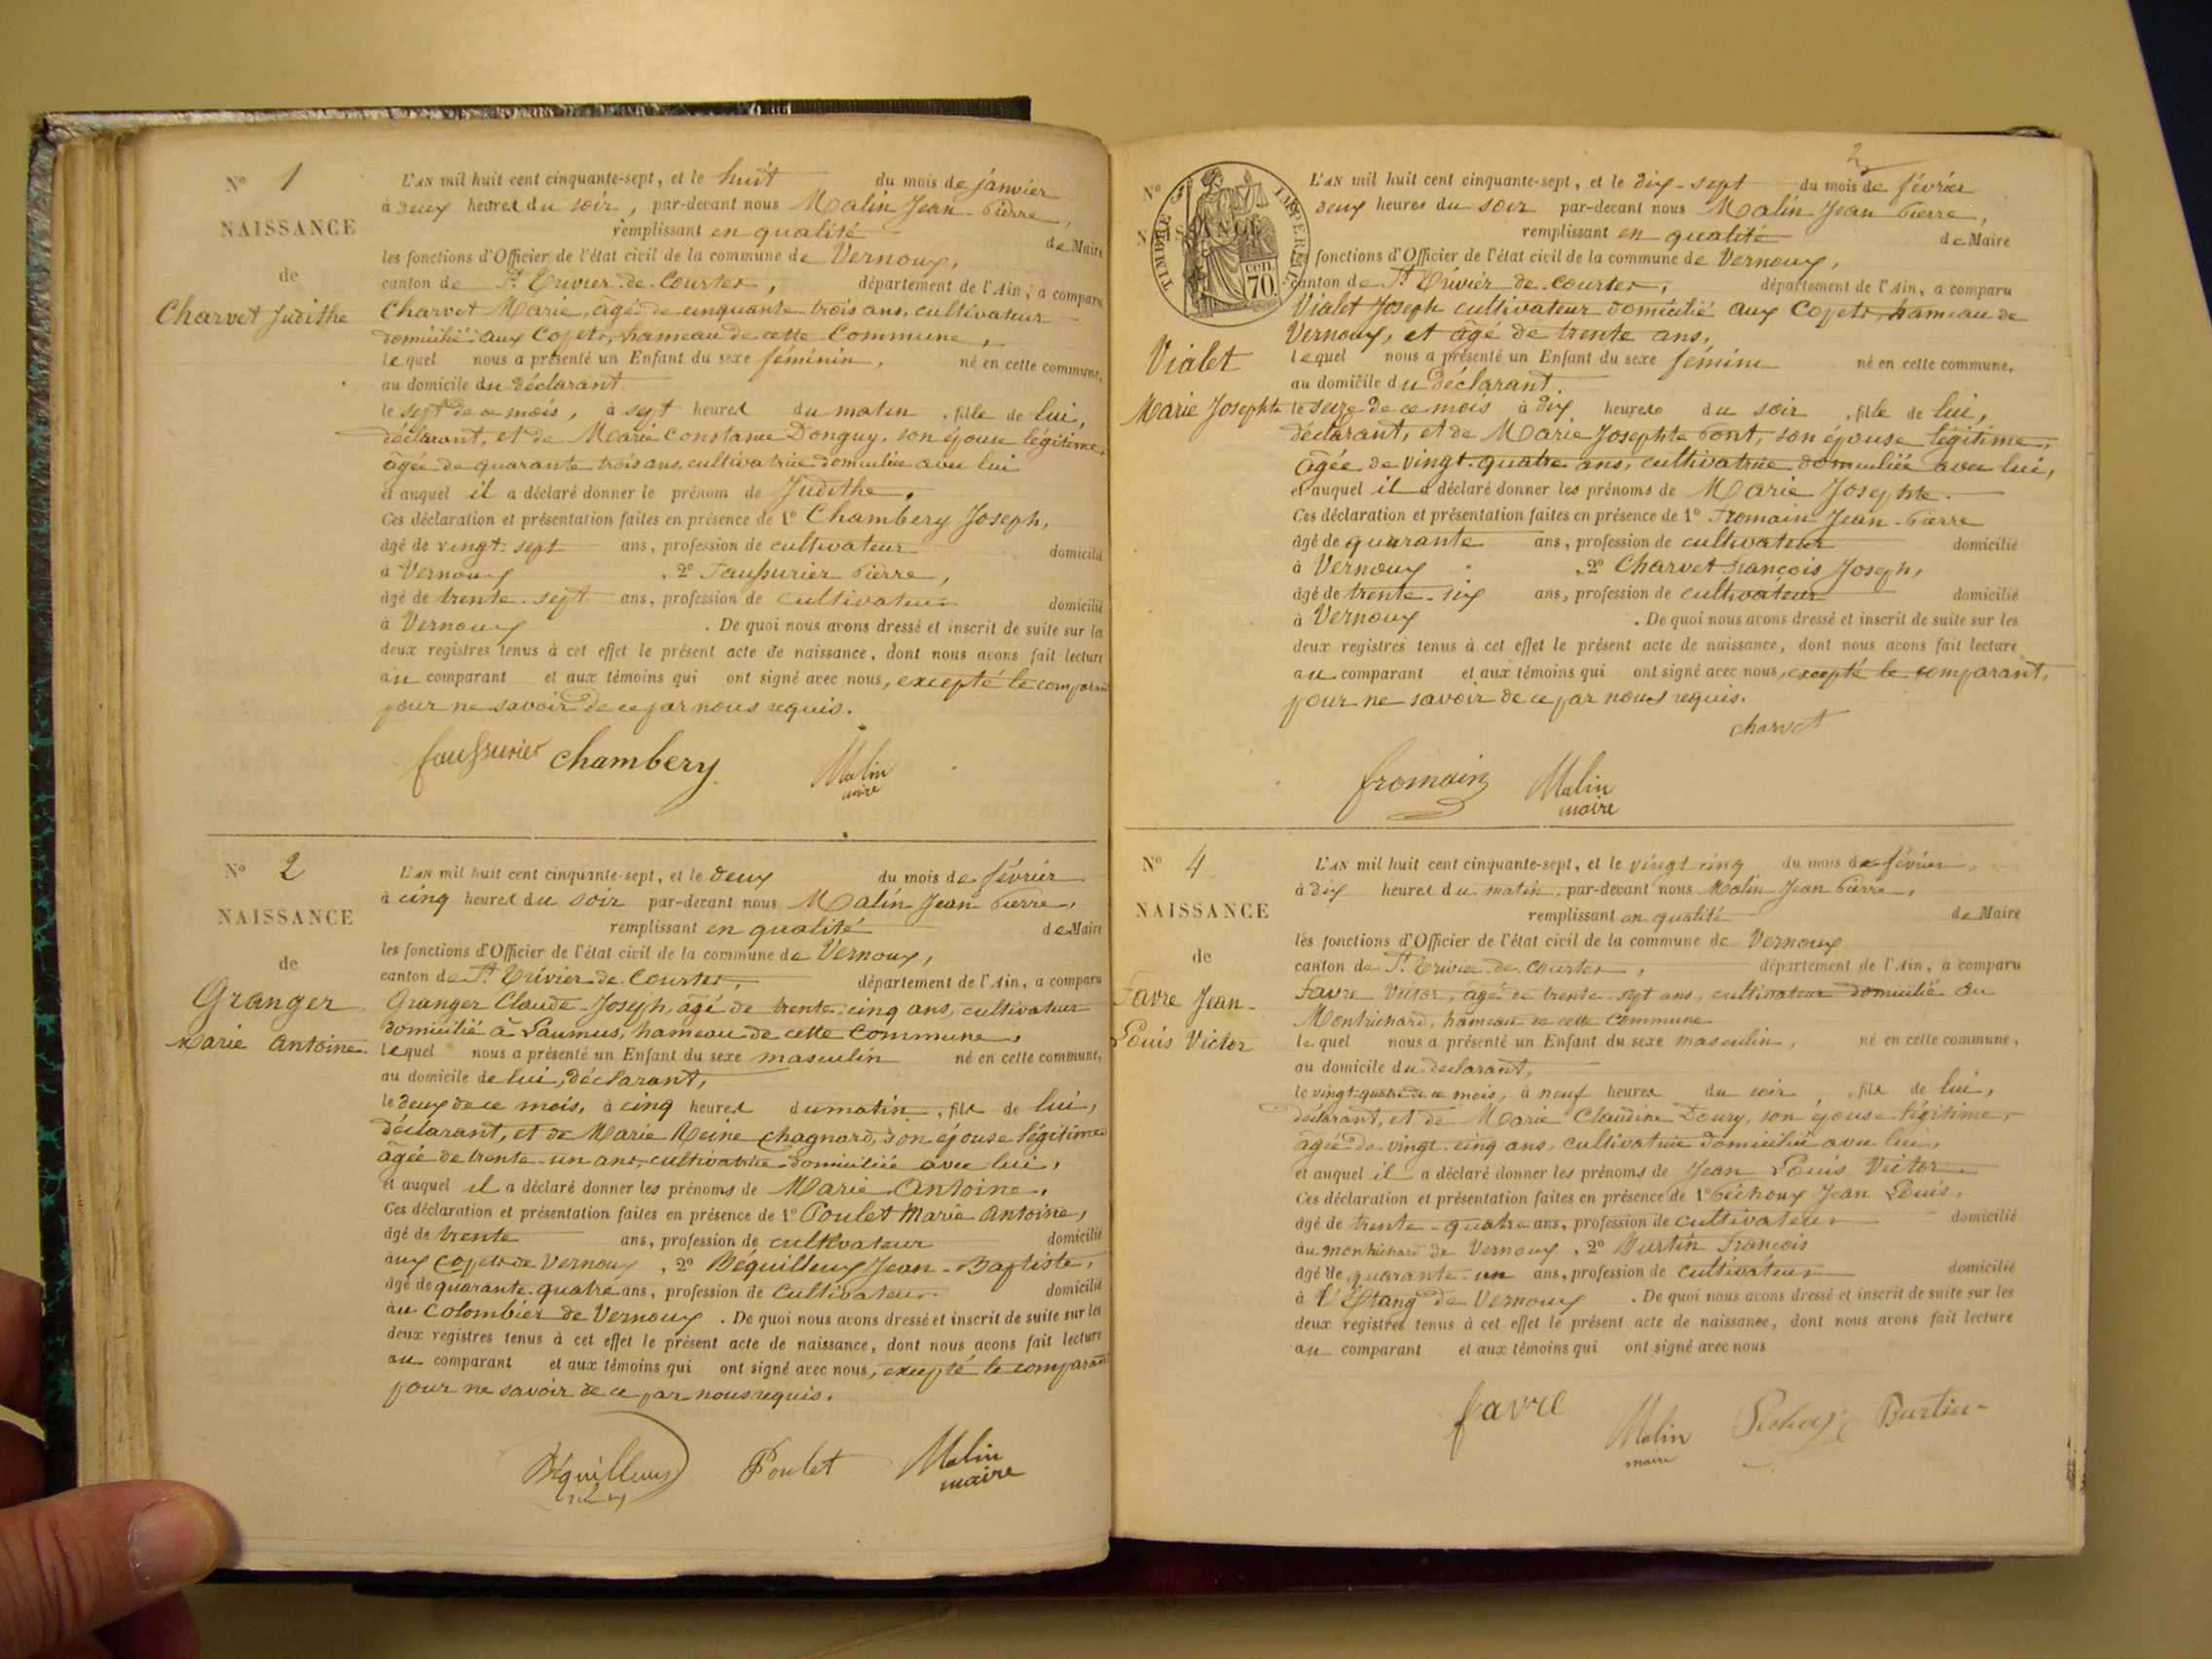 N° 1
NAISSANCE
de
Charvet Judithe
L'AN mil huit cent cinquante-sept, et le huit du mois de janvier
à deux heures du soir, par-devant nous Malin Jean-Pierre,
remplissant en qualité de Maire
les fonctions d'Officier de l'état civil de la commune de Vernoux,
canton de St. Trivier-de-Courtes, département de l'Ain, a comparu
Charvet Marie, âgé de cinquante trois ans, cultivateur
domicilié aux Copets, hameau de cette Commune,
lequel nous a présenté un Enfant du sexe féminin, né en cette commune,
au domicile du déclarant
le sept de ce mois, à sept heures du matin, fille de lui,
déclarant, et de Marie Constance Donguy, son épouse légitime,
âgée de quarante trois ans, cultivatrice domiciliée avec lui
et auquel il a déclaré donner le prénom de Judithe.
Ces déclaration et présentation faites en présence de 1° Chambery Joseph,
âgé de vingt-sept ans, profession de cultivateur domicilié
à Vernoux, 2° Faussurier Pierre,
âgé de trente-sept ans, profession de cultivateur domicilié
à Vernoux. De quoi nous avons dressé et inscrit de suite sur les
deux registres tenus à cet effet le présent acte de naissance, dont nous avons fait lecture
au comparant et aux témoins qui ont signé avec nous, excepté le comparant
pour ne savoir de ce par nous requis.
faussurier chambery Malin
maire
N° 2
NAISSANCE
de
Granger
Marie Antoine.
L'AN mil huit cent cinquante-sept, et le deux du mois de février
à cinq heures du soir par-devant nous Malin Jean Pierre,
remplissant en qualité de Maire
les fonctions d'Officier de l'état civil de la commune de Vernoux,
canton de St. Trivier-de-Courtes, département de l'Ain, a comparu
Granger Claude-Joseph, âgé de trente-cinq ans, cultivateur
domicilié à Laumus, hameau de cette Commune,
lequel nous a présenté un Enfant du sexe masculin né en cette commune,
au domicile de lui, déclarant,
le deux de ce mois, à cinq heures du matin, fils de lui,
déclarant, et de Marie Reine Chagnard, son épouse légitime
âgée de trente-un ans, cultivatrice domiciliée avec lui,
et auquel il a déclaré donner les prénoms de Marie Antoine,
Ces déclaration et présentation faites en présence de 1° Poulet Marie Antoine,
âgé de trente ans, profession de cultivateur domicilié
aux Copets de Vernoux, 2° Béquilleux Jean-Baptiste,
âgé de quarante-quatre ans, profession de Cultivateur domicilié
au Colombier de Vernoux. De quoi nous avons dressé et inscrit de suite sur les
deux registres tenus à cet effet le présent acte de naissance, dont nous avons fait lecture
au comparant et aux témoins qui ont signé avec nous, excepté le comparant
pour ne savoir de ce par nous requis.
Béquilleux Poulet Malin
maire
2
N°
TIMBRE IMPÉRIAL
70 cen.
Vialet
Marie Josephte
L'AN mil huit cent cinquante-sept, et le dix-sept du mois de février
deux heures du soir par-devant nous Malin Jean Pierre,
remplissant en qualité de Maire
fonctions d'Officier de l'état civil de la commune de Vernoux,
canton de St. Trivier-de-Courtes, département de l'Ain, a comparu
Vialet Joseph cultivateur domicilié aux Copets, hameau de
Vernoux, et âgé de trente ans,
lequel nous a présenté un Enfant du sexe féminin né en cette commune,
au domicile du déclarant.
le seize de ce mois à dix heures du soir, fille de lui,
déclarant, et de Marie Josephte Pont, son épouse légitime,
âgée de vingt-quatre ans, cultivatrice domiciliée avec lui,
et auquel il a déclaré donner les prénoms de Marie Josephte.
Ces déclaration et présentation faites en présence de 1° Fromain Jean-Pierre
âgé de quarante ans, profession de cultivateur domicilié
à Vernoux, 2° Charvet François Joseph,
âgé de trente-six ans, profession de cultivateur domicilié
à Vernoux. De quoi nous avons dressé et inscrit de suite sur les
deux registres tenus à cet effet le présent acte de naissance, dont nous avons fait lecture
au comparant et aux témoins qui ont signé avec nous, excepté le comparant,
pour ne savoir de ce par nous requis.
charvet
fromain Malin
maire
N° 4
NAISSANCE
de
Favre Jean-
Louis Victor
L'AN mil huit cent cinquante-sept, et le vingt cinq du mois de février,
à dix heures du matin, par-devant nous Malin Jean Pierre,
remplissant en qualité de Maire
les fonctions d'Officier de l'état civil de la commune de Vernoux
canton de St. Trivier-de-Courtes, département de l'Ain, a comparu
Favre Victor, âgé de trente-sept ans, cultivateur domicilié au
Montrichard, hameau de cette Commune
lequel nous a présenté un Enfant du sexe masculin, né en cette commune,
au domicile du déclarant,
le vingt-quatre de ce mois, à neuf heures du soir, fils de lui,
déclarant, et de Marie Claudine Doury, son épouse légitime,
âgée de vingt-cinq ans, cultivatrice domiciliée avec lui,
et auquel il a déclaré donner les prénoms de Jean Louis Victor.
Ces déclaration et présentation faites en présence de 1° Péchoux Jean Louis,
âgé de trente-quatre ans, profession de cultivateur domicilié
au montrichard de Vernoux, 2° Burtin François
âgé de quarante-un ans, profession de cultivateur domicilié
à l'Etang de Vernoux. De quoi nous avons dressé et inscrit de suite sur les
deux registres tenus à cet effet le présent acte de naissance, dont nous avons fait lecture
au comparant et aux témoins qui ont signé avec nous
favre Malin Péchoux Burtin
maire